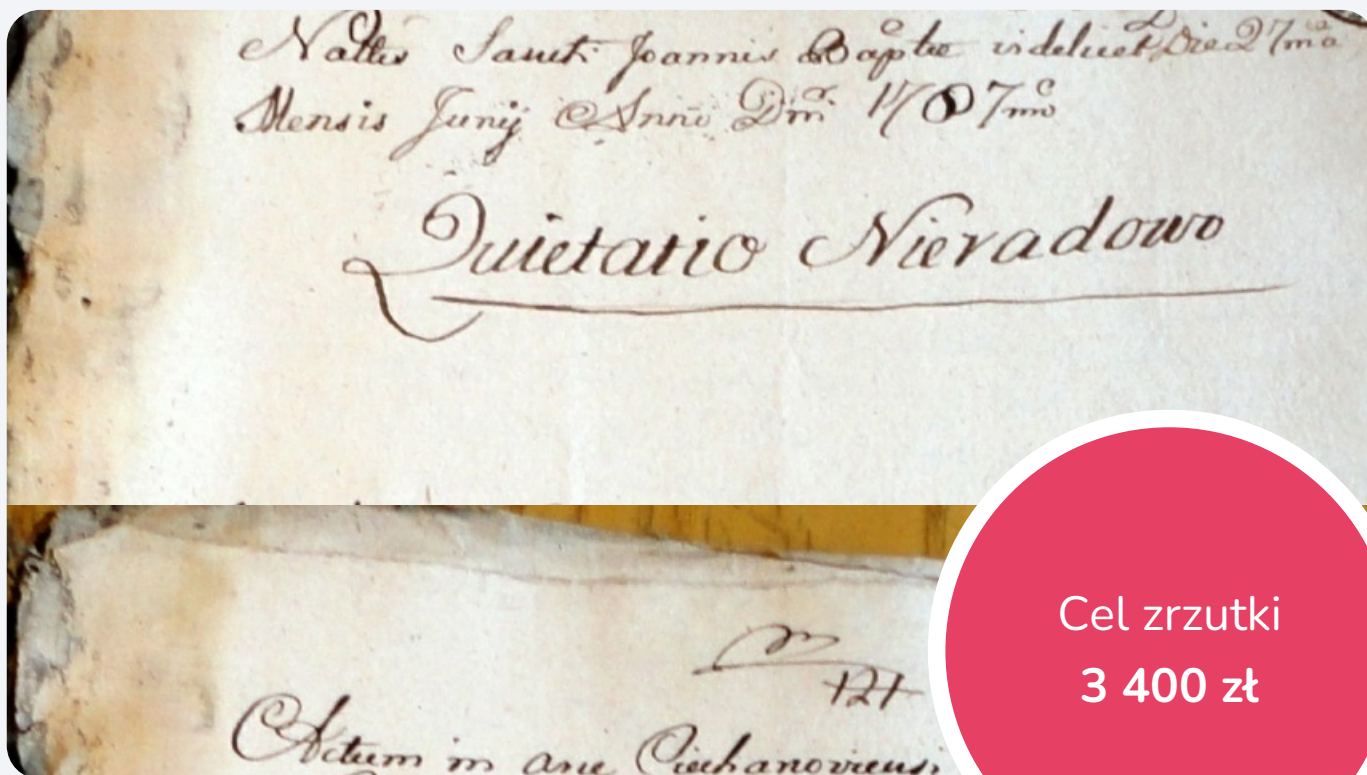 Nattis Sancti Joannis Baptae videlicet Die 27ma
Mensis Junij Anno Dni 1787mo
Quietatio Nieradowo
121
Actum in arce Ciechanoviensi
Cel zrzutki
3 400 zł